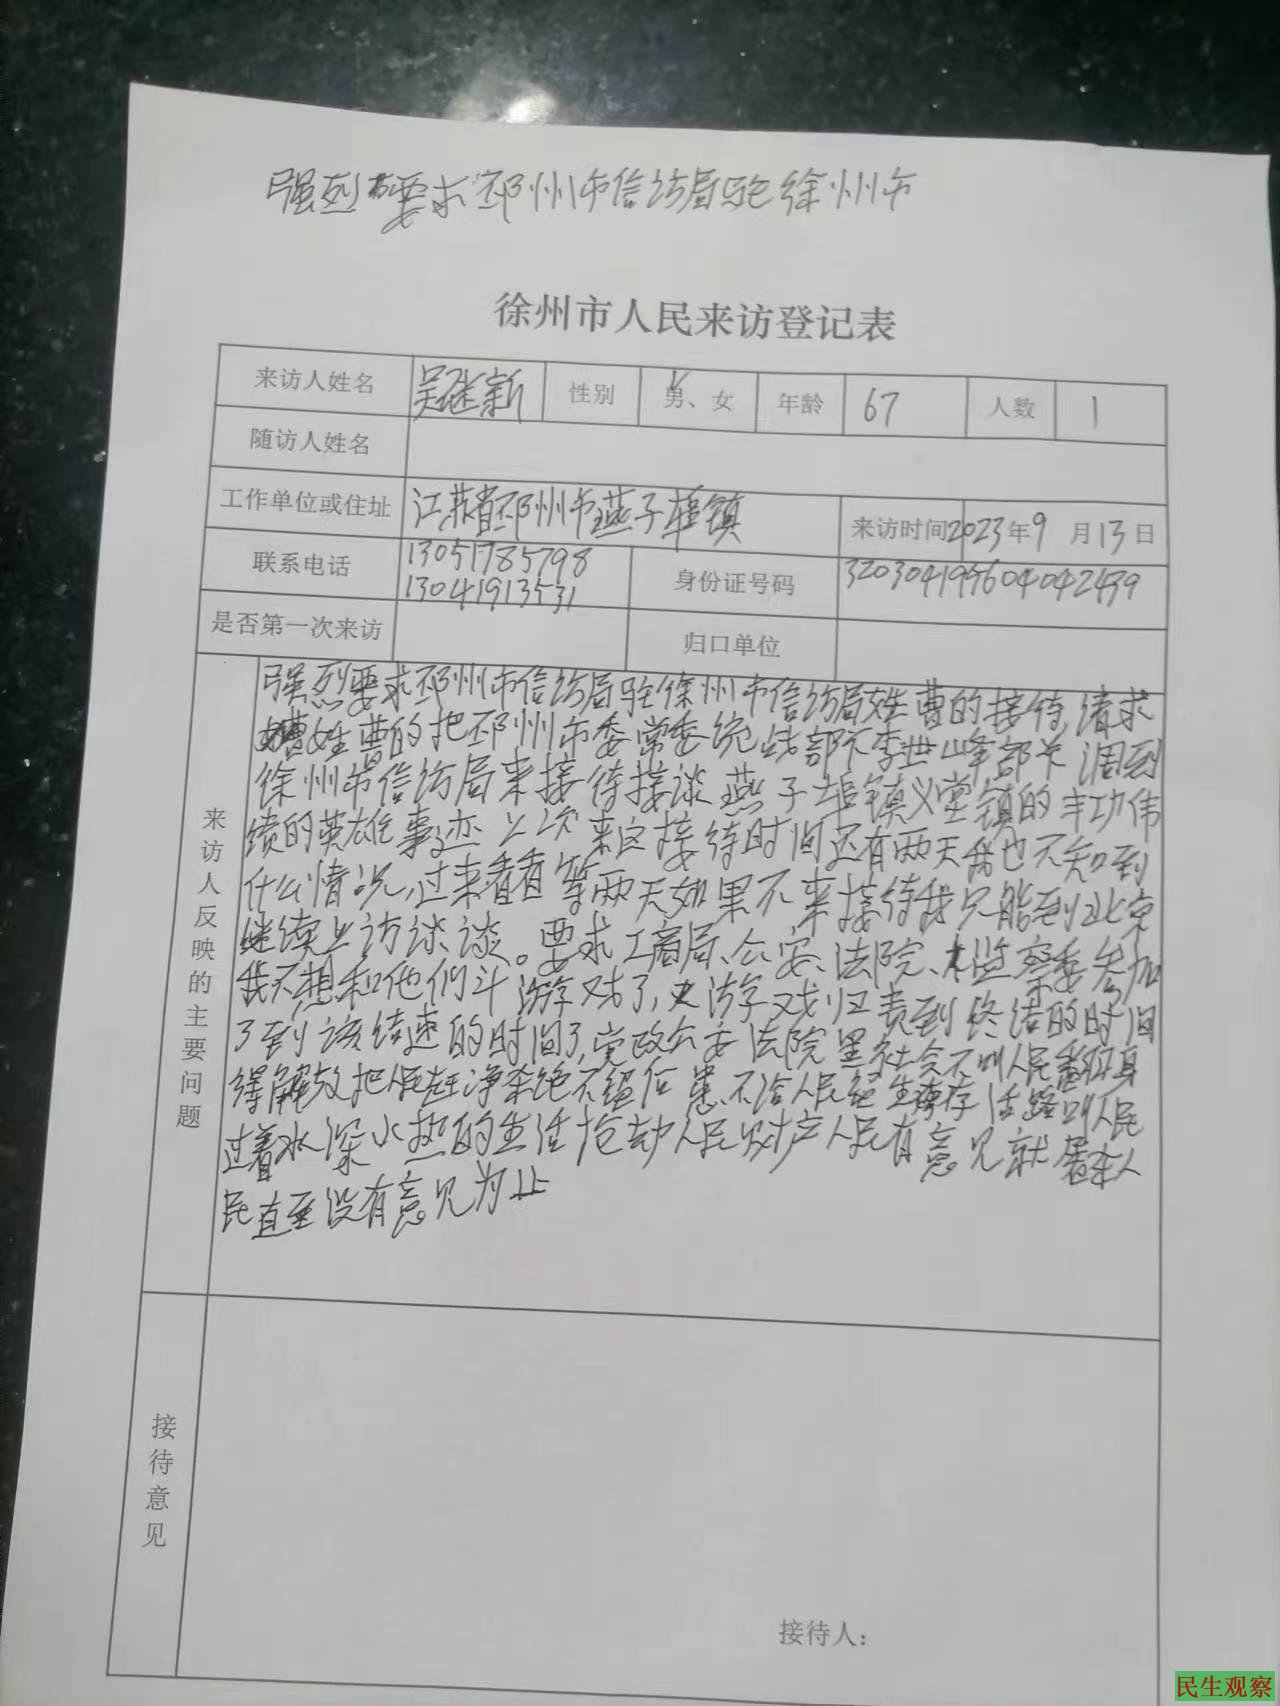 强烈要求邳州市信访局驻徐州市
徐州市人民来访登记表
来访人姓名 吴继新 性别 男、女 年龄 67 人数 1
随访人姓名
工作单位或住址 江苏省邳州市燕子埠镇 来访时间2023年9月13日
联系电话 13051785798 身份证号码
13041913531
是否第一次来访 归口单位
来访人反映的主要问题
强烈要求邳州市信访局驻徐州市信访局姓曹的接待,请求
姓曹的把邳州市委常委统战部 李世峰部长调到
徐州市信访局来接待接谈燕子埠镇义堂镇的丰功伟
绩的英雄事迹上次来这接待时间还有两天我也不知到
什么情况,过来看看等两天如果不来接待我只能到北京
继续上访谈谈。要求工商局、公安、法院、监察委参加
我不想和他们斗游戏了,游戏归责到终结的时间
了到该结速的时间了,党政公安法院黑社会不叫人民翻身
得解放把人民赶净杀绝不留后患,不给人民 生存活路叫人民
过着水深火热的生活抢劫人民财产人民有意见就 人
民直至没有意见为止
接待意见
接待人：
民生观察